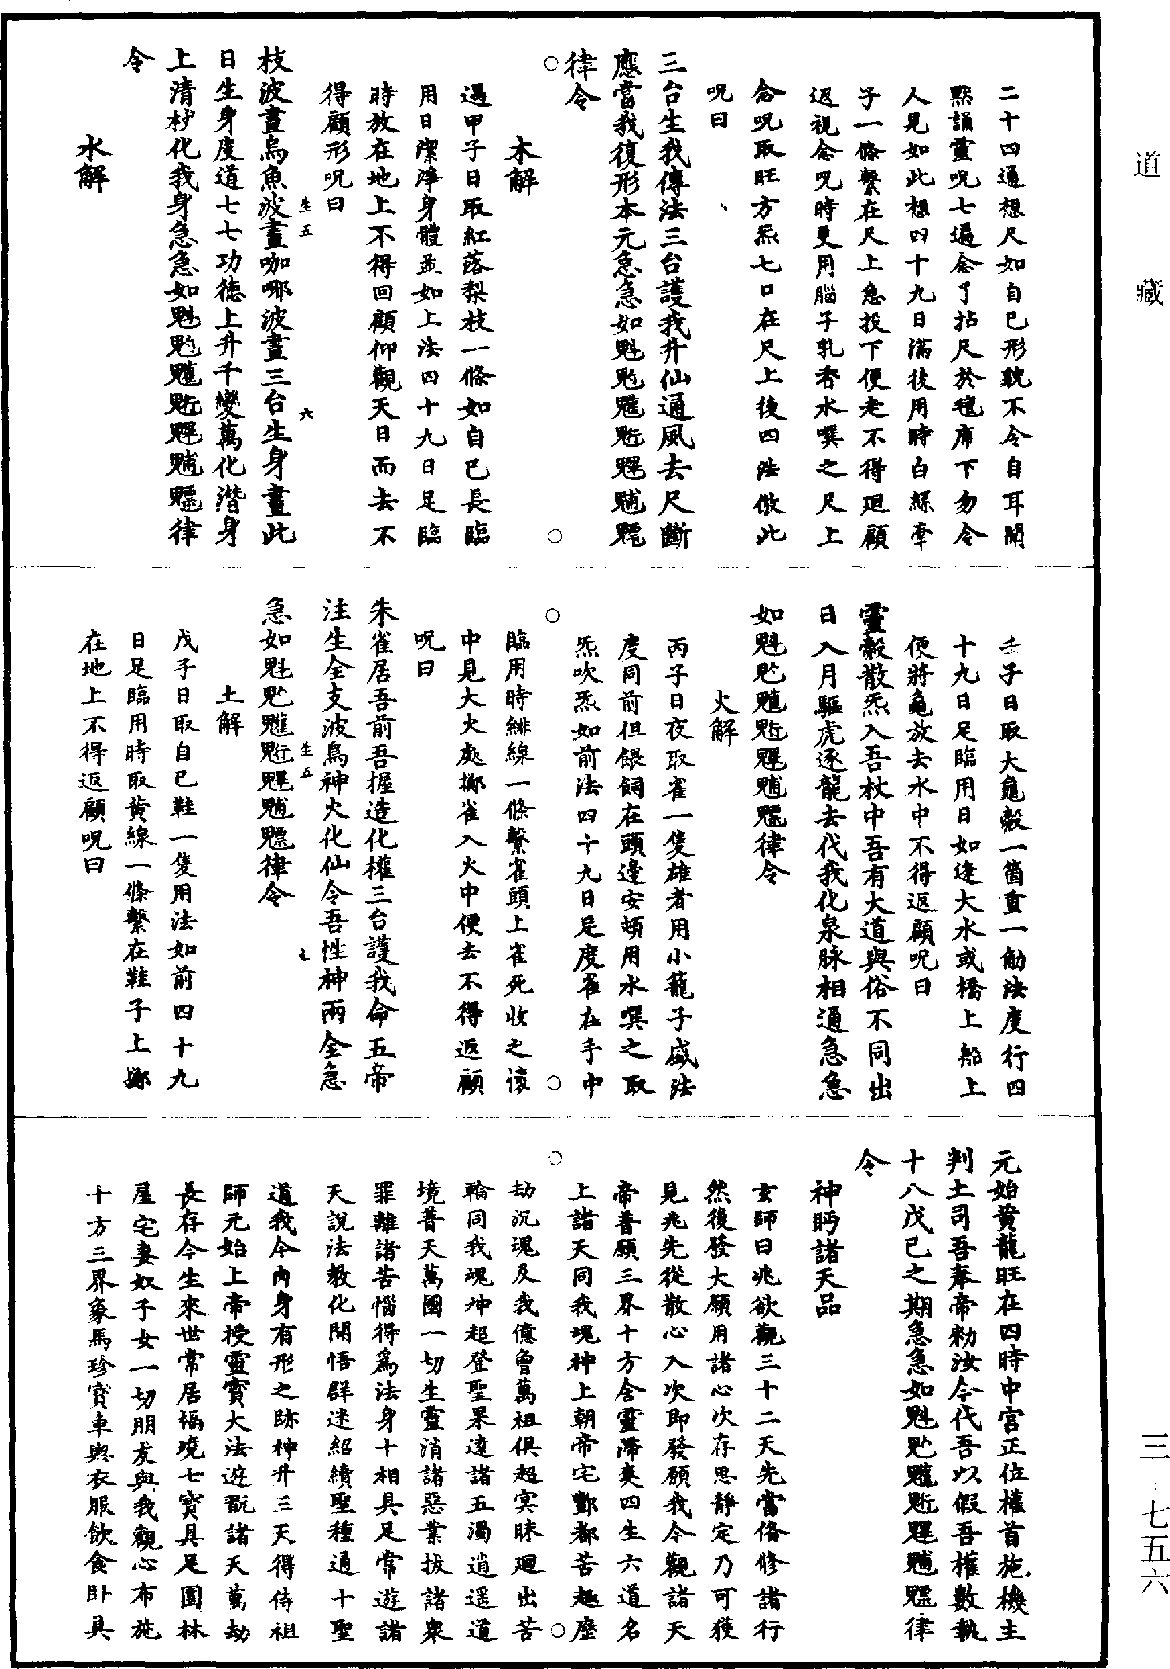 道藏
二十四通想尺如自己形貌不令自耳聞
黙誦靈呪七遍念了拈尺於氊席下勿令
人見如此想四十九日滿後用時白綵牽
子一條繫在尺上急投下便走不得迴顧
返視念呪時更用腦子乳香水噀之尺上
念呪取旺方炁七口在尺上後四法倣此
呪曰
三台生我傳法三台護我升仙通風去尺斷
應當我復形本元急急如魁䰢䰡䰣魓䰤魒
律令
木解
遇甲子日取紅落梨枝一條如自己長臨
用日潔淨身體並如上法四十九日足臨
時放在地上不得回顧仰觀天日而去不
得顧形呪曰
生五 六
枝波畫烏魚波畫咖哪波畫三台生身畫此
日生身度道七七功德上升千變萬化潛身
上清杪化我身急急如魁魓律
令
水解
壬子日取大龜殼一箇重一觔法度行四
十九日足臨用日如逢大水或橋上船上
便將龜放去水中不得返顧呪曰
靈殼散炁入吾杖中吾有大道與俗不同出
日入月驅虎逐龍去代我化泉脉相通急急
如魁律令
火解
丙子日夜取雀一隻雄者用小籠子盛法
度同前但餵飼在頭邊安頓用水噀之取
炁吹炁如前法四十九日足度雀在手中
臨用時緋線一條繫雀頭上雀死收之懷
中見大火處擲雀入火中便去不得返顧
呪曰
朱雀居吾前吾握造化權三台護我命五帝
注生全支波鳥神火化仙令吾性神兩全急
生五 七
急如魁律令
土解
戊子日取自己鞋一隻用法如前四十九
日足臨用時取黄線一條繫在鞋子上擲
在地上不得返顧呪曰
元始黄龍旺在四時中宫正位權首施機主
判土司吾奉帝勑汝今代吾以假吾權數執
十八戊己之期急急如魁律
令
神眄諸天品
玄師曰兆欲觀三十二天先當俻修諸行
然後發大願用諸心次存思静定乃可獲
見兆先從散心入次即發願我今觀諸天
帝普願三界十方含靈滯爽四生六道名
上諸天同我魂神上朝帝宅酆都苦趣歷
劫沉魂及我億曾萬祖俱超冥昧廻出苦
輪同我魂神超登聖果遠諸五濁逍遥道
境普天萬國一切生靈消諸惡業拔諸衆
罪離諸苦惱得爲法身十相具足常遊諸
天說法教化開悟群迷紹續聖種通十聖
道我今肉身有形之跡神升三天得侍祖
師元始上帝授靈寳大法遊翫諸天萬劫
長存今生來世常居福境七寳具足園林
屋宅妻奴子女一切朋友與我觀心布施
十方三界象馬珍寳車與衣服飲食卧具
三 七五六